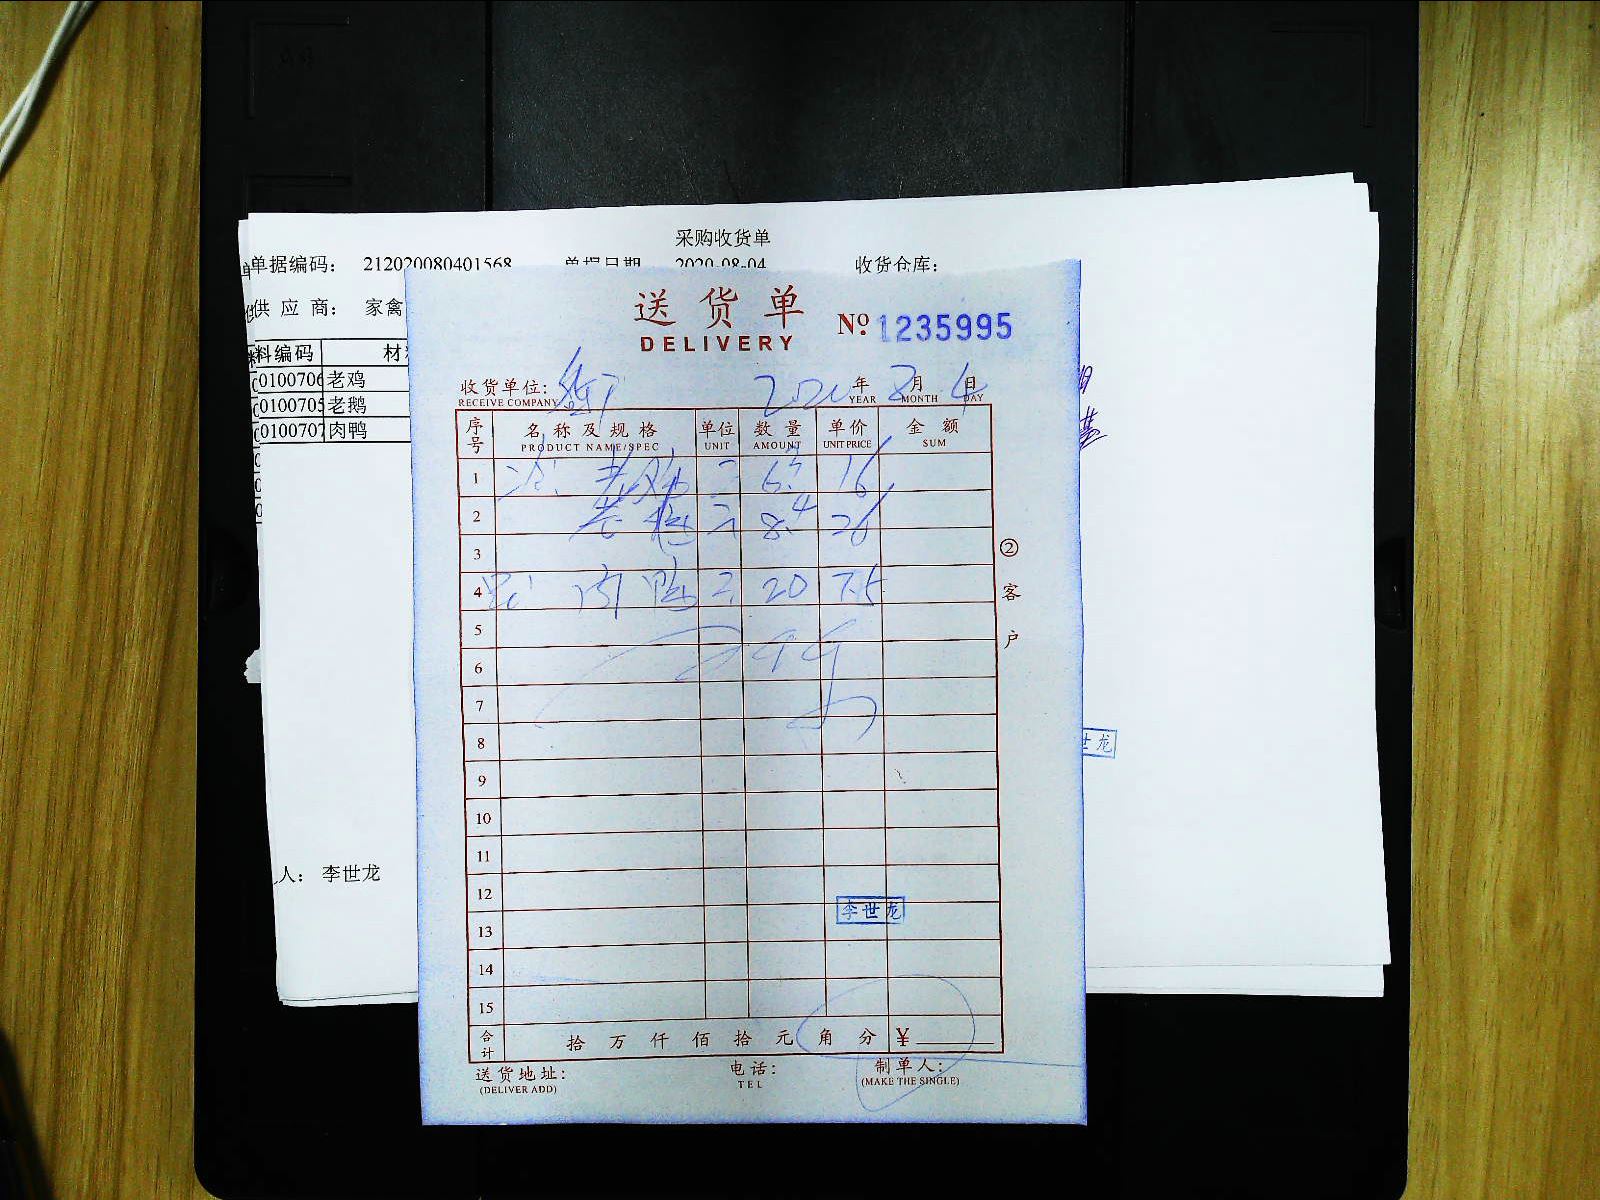 采购收货单
单据编码： 212020080401568 单据日期 2020-08-04 收货仓库：
供 应 商： 家禽
料编码 材
0100706 老鸡
0100705 老鹅
0100707 肉鸭
人： 李世龙
世龙
送货单
DELIVERY
№ 1235995
收货单位：
RECEIVE COMPANY
2020 年 8 月 4 日
YEAR MONTH DAY
序号 名称及规格 单位 数量 单价 金额
PRODUCT NAME/SPEC UNIT AMOUNT UNIT PRICE SUM
1 老鸡 16
2 老 8.4 26
3
4 肉鸭 20 7.5
5
6
7
8
9
10
11
12
13
14
15
李世龙
合计 拾 万 仟 佰 拾 元 角 分 ¥
送货地址： 电话： 制单人：
(DELIVER ADD) TEL (MAKE THE SINGLE)
② 客户